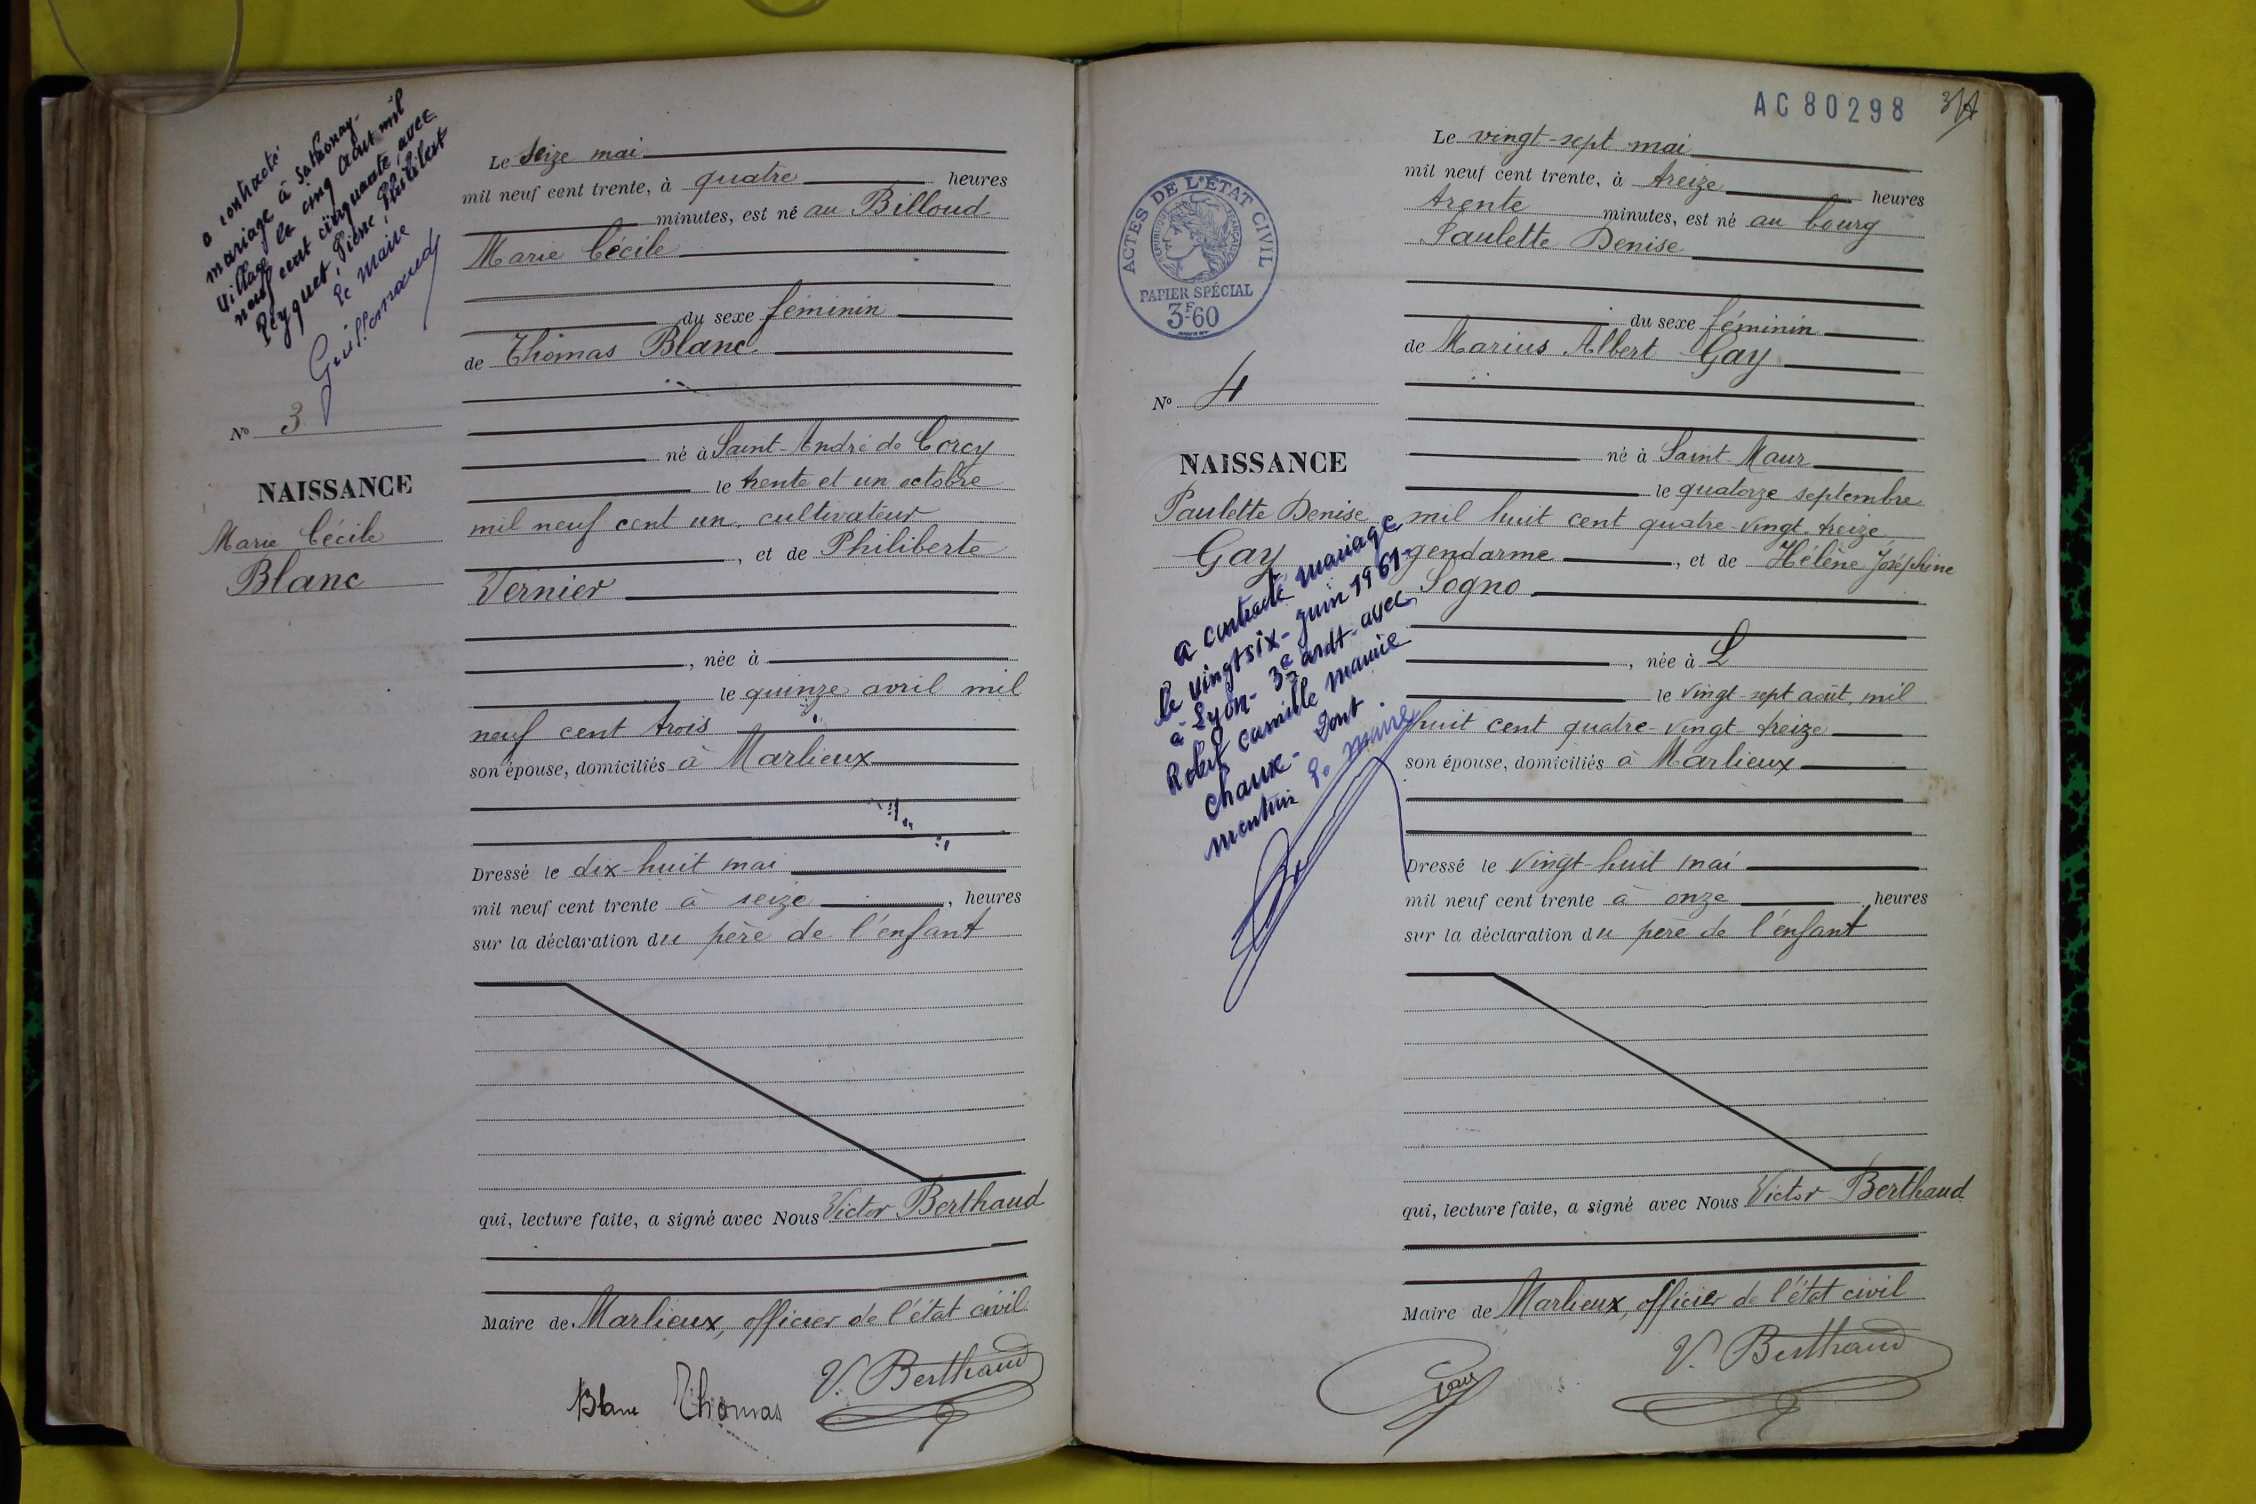 a contracté
mariage à Sathonay-
Village le cinq Août mil
neuf cent cinquante, avec
Peyguet, Pierre, Philibert
le Maire
Nº 3
NAISSANCE
Marie Cécile
Blanc
Le seize mai
mil neuf cent trente, à quatre heures
minutes, est né au Billoud
Marie Cécile
du sexe féminin
de Thomas Blanc
né à Saint-André de Corcy
le trente et un octobre
mil neuf cent un, cultivateur
, et de Philiberte
Vernier
, née à
le quinze avril mil
neuf cent trois
son épouse, domiciliés à Marlieux
Dressé le dix-huit mai
mil neuf cent trente à seize, heures
sur la déclaration du père de l'enfant
qui, lecture faite, a signé avec Nous Victor Berthaud
Maire de Marlieux, officier de l'état civil
Blanc Thomas V. Berthaud
AC 80298
ACTES DE L'ÉTAT CIVIL
RÉPUBLIQUE FRANÇAISE
PAPIER SPÉCIAL
3F60
Nº 4
NAISSANCE
Paulette Denise
Gay
a contracté mariage
le vingt six - juin 1961-
à Lyon - 3e ardt - avec
Robert Camille Maurice
Chaux - Dont
mention Le Maire
Le vingt-sept mai
mil neuf cent trente, à treize heures
trente minutes, est né au bourg
Paulette Denise
du sexe féminin
de Marius Albert Gay
né à Saint-Maur
le quatorze septembre
mil huit cent quatre-vingt-treize,
gendarme, et de Hélène Joséphine
Sogno
, née à L
le vingt-sept août mil
huit cent quatre-vingt-treize
son épouse, domiciliés à Marlieux
Dressé le vingt-huit mai
mil neuf cent trente à onze heures
sur la déclaration du père de l'enfant
qui, lecture faite, a signé avec Nous Victor Berthaud
Maire de Marlieux, officier de l'état civil
Gay V. Berthaud